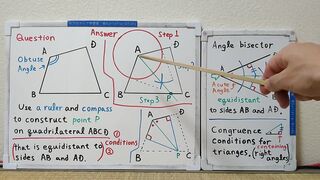 Question
A
D
Obtuse
Angle
B
C
Use a ruler and compass
to construct point P
on quadrilateral ABCD
that is equidistant to
sides AB and AD.
① conditions
②
Answer
Step1
A
D
B
Step3
P
C
A
D
B
P
C
Angle bisector
A
Acute
Angle
B
D
equidistant
to sides AB and AD
Congruence
conditions for
trianges.
(containing
right
angles)